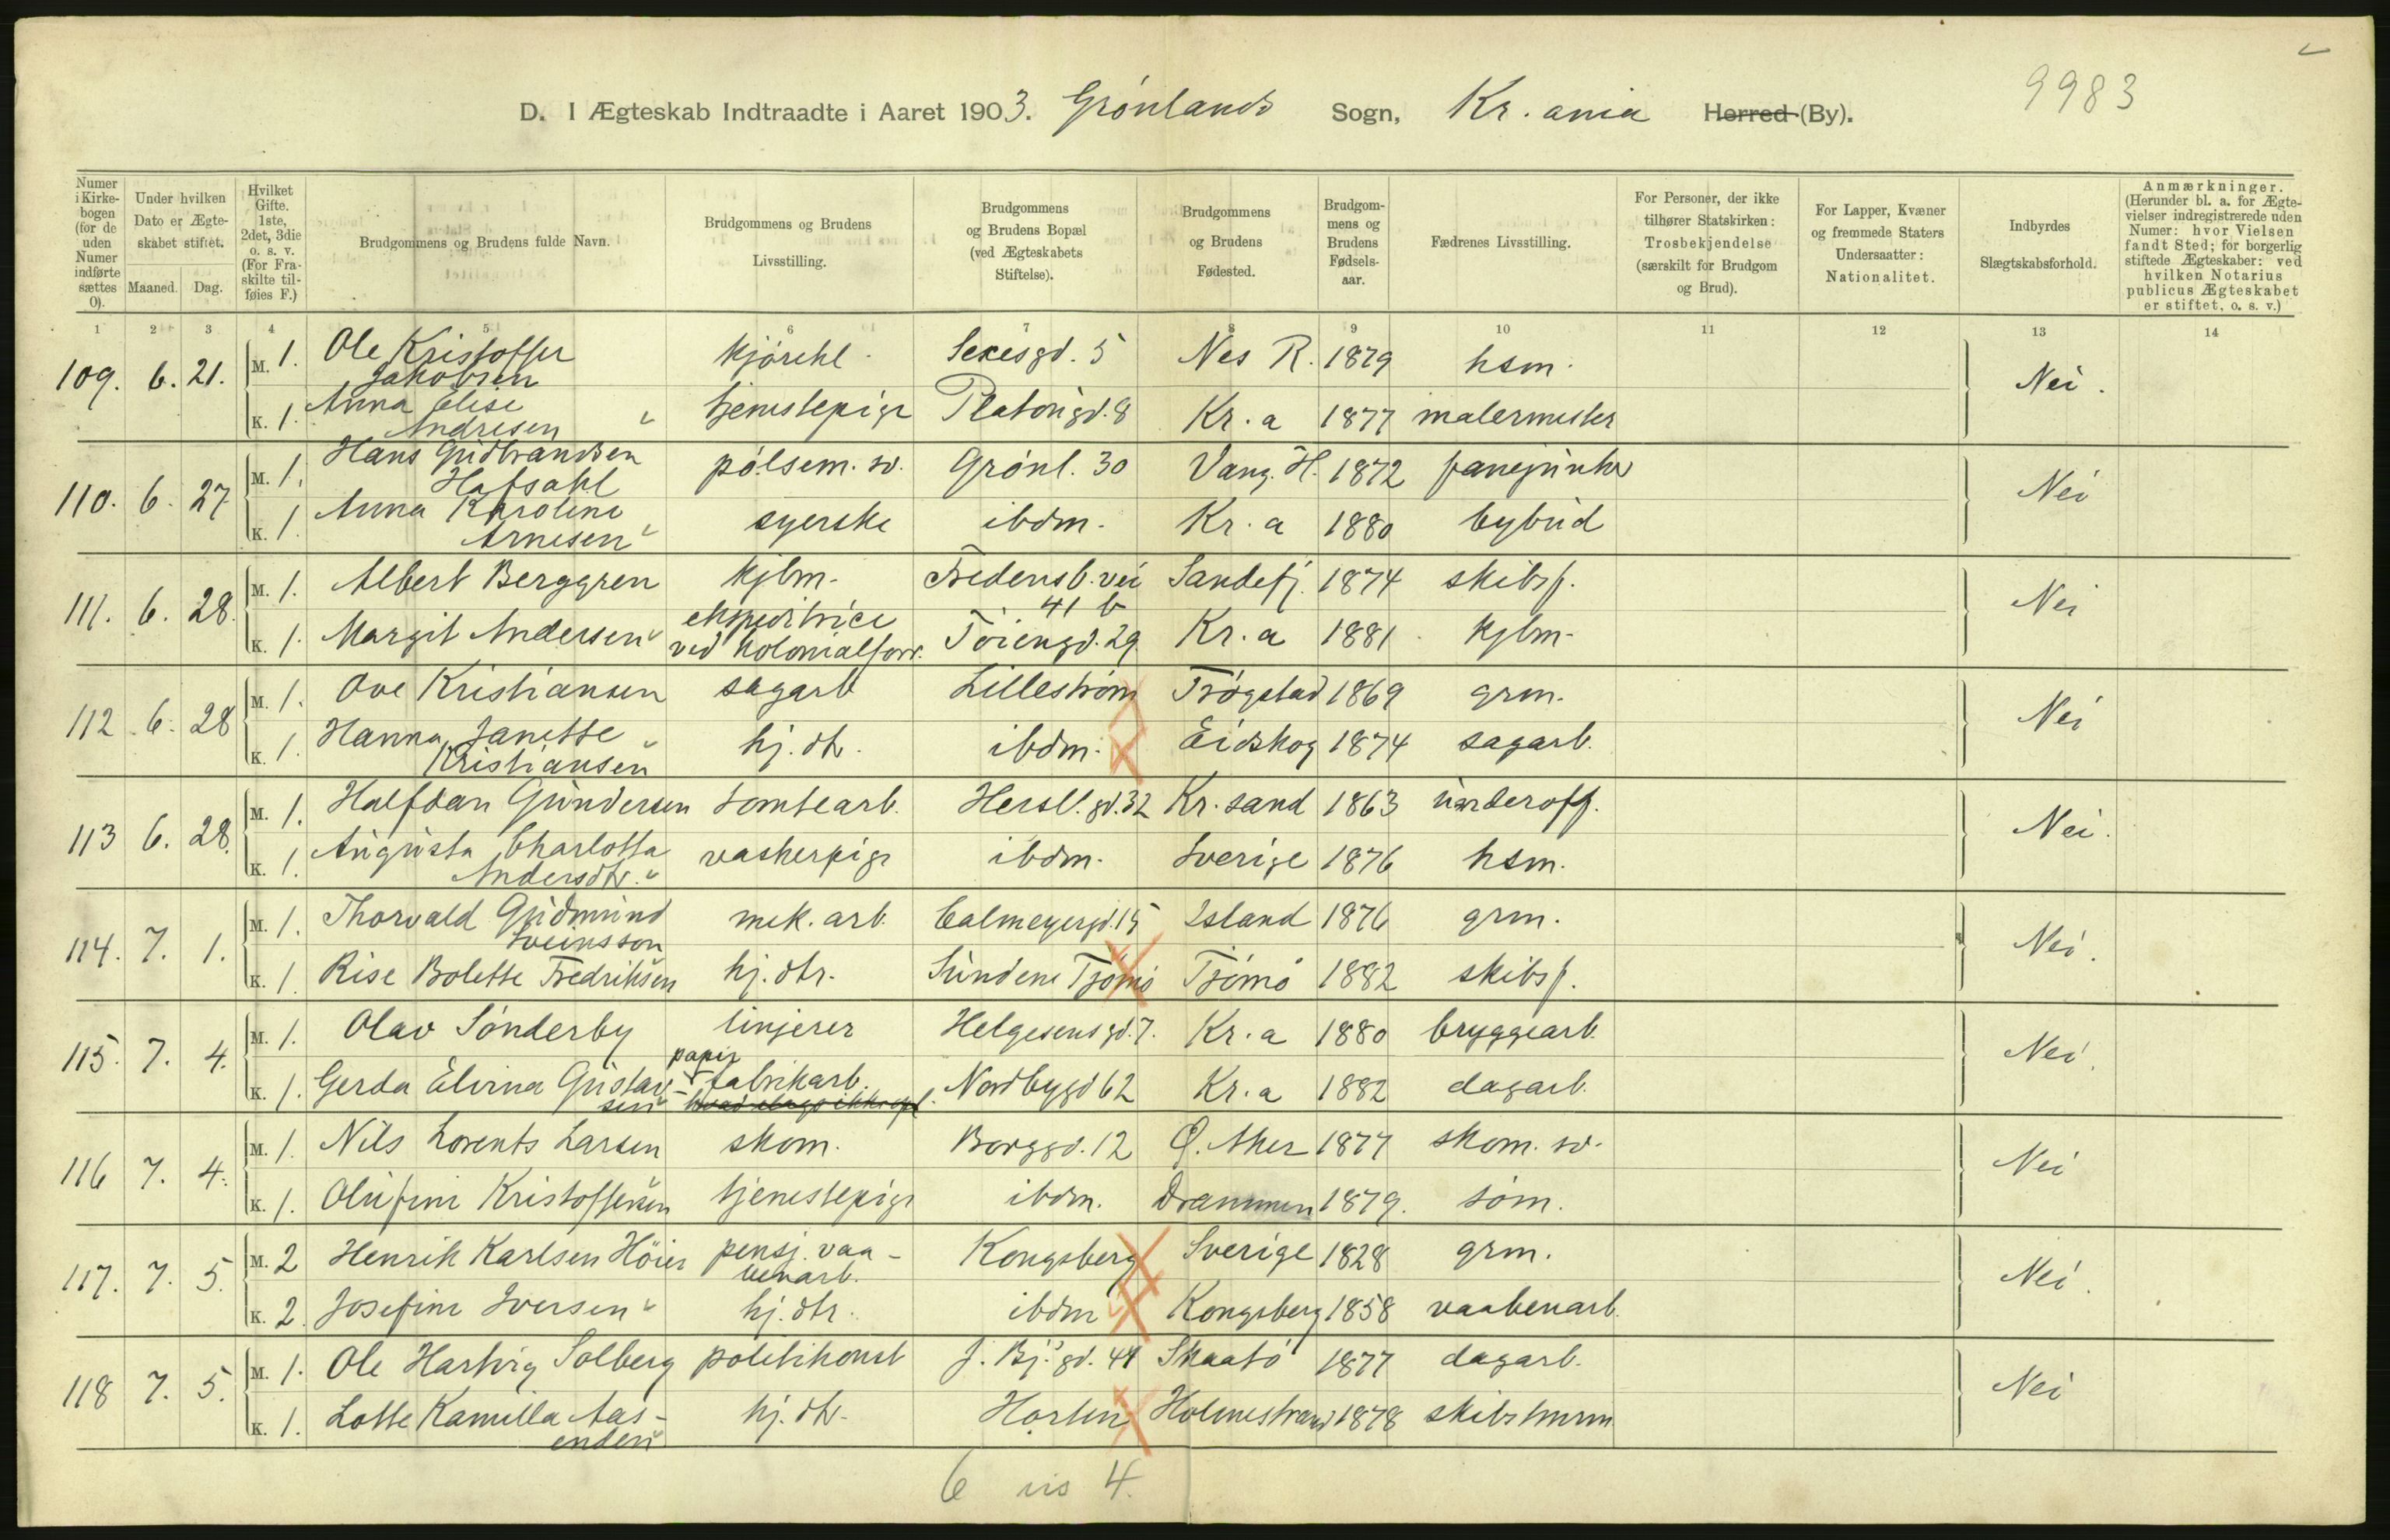 9983
D. I Ægteskab Indtraadte i Aaret 1903. Grønlands Sogn, Kr.ania Herred (By).
Numer i Kirkebogen (for de uden Numer indførte sættes 0).
Under hvilken Dato er Ægteskabet stiftet.
Maaned. Dag.
Hvilket Gifte. 1ste, 2det, 3die o. s. v. (For Fraskilte tilføies F.)
Brudgommens og Brudens fulde Navn.
Brudgommens og Brudens Livsstilling.
Brudgommens og Brudens Bopæl (ved Ægteskabets Stiftelse).
Brudgommens og Brudens Fødested.
Brudgommens og Brudens Fødselsaar.
Fædrenes Livsstilling.
For Personer, der ikke tilhører Statskirken: Trosbekjendelse (særskilt for Brudgom og Brud).
For Lapper, Kvæner og fremmede Staters Undersaatter: Nationalitet.
Indbyrdes Slægtskabsforhold.
Anmærkninger. (Herunder bl. a. for Ægtevielser indregistrerede uden Numer: hvor Vielsen fandt Sted; for borgerlig stiftede Ægteskaber: ved hvilken Notarius publicus Ægteskabet er stiftet, o. s. v.)
1 2 3 4 5 6 7 8 9 10 11 12 13 14
109. 6. 21. M. 1. Ole Kristoffer Jakobsen kjørekl. Sexesgd. 5 Nes R. 1879 hsm. Nei.
K. 1. Anna Elise Andresen tjenestepige Platousgd. 8 Kr.a 1877 malermester
110. 6. 27 M. 1. Hans Gudbrandsen Hafsahl pølsem. sv. Grønl. 30 Vang. H. 1872 Nei
K. 1. Anna Karoline Arnesen syerske ibdm. Kr.a 1880 bybud
111. 6. 28. M. 1. Albert Berggren kjbm. Fredensb.vei 41 b Sandefj. 1874 skibsf. Nei
K. 1. Margit Andersen ekspeditrice ved kolonialforr. Tøiengd. 29 Kr.a 1881 kjbm.
112 6. 28 M. 1. Ove Kristiansen sagarb Lillestrøm Trøgstad 1869 grm. Nei
K. 1. Hanna Janette Kristiansen hj. dtr. ibdm. Eidskog 1874 sagarb.
113 6. 28. M. 1. Halfdan Gundersen tomtearb. Hersl. gd. 32 Kr.sand 1863 underoff. Nei.
K. 1. Augusta Charlotta Andersdtr. vaskerpige ibdm. Sverige 1876 hsm.
114. 7. 1. M. 1. Thorvald Gudmund Sveinsson mek. arb. Calmeyersgd. 15 Island 1876 grm. Nei.
K. 1. Rise Bolette Fredriksen hj. dtr. Sundene Tjømø Tjømø 1882 skibsf.
115. 7. 4. M. 1. Olav Sønderby linjerer Helgesensgd. 7. Kr.a 1880 bryggearb. Nei.
K. 1. Gerda Elvina Gustavsen papir fabrikarb. hvad slags ikke opl. Nordbygd 62 Kr.a 1882 dagarb.
116 7. 4. M. 1. Nils Lorents Larsen skom. Borggd. 12 Ø. Aker 1877 skom. sv. Nei
K. 1. Olufine Kristoffersen tjenestepige ibdm. Drammen 1879. søm.
117. 7. 5. M. 2 Henrik Karlsen Höier pensj. vaabenarb. Kongsberg Sverige 1828 grm. Nei.
K. 2. Josefine Iversen hj. dtr. ibdm Kongsberg 1858 vaabenarb.
118 7. 5. M. 1. Ole Hartvig Solberg politikonst J. Bj.s gd. 41 Skaatø 1877 dagarb. Nei
K. 1. Lotte Kamilla Aasenden hj. dtr. Horten Holmestrand 1878 skibstmrm
6 4.